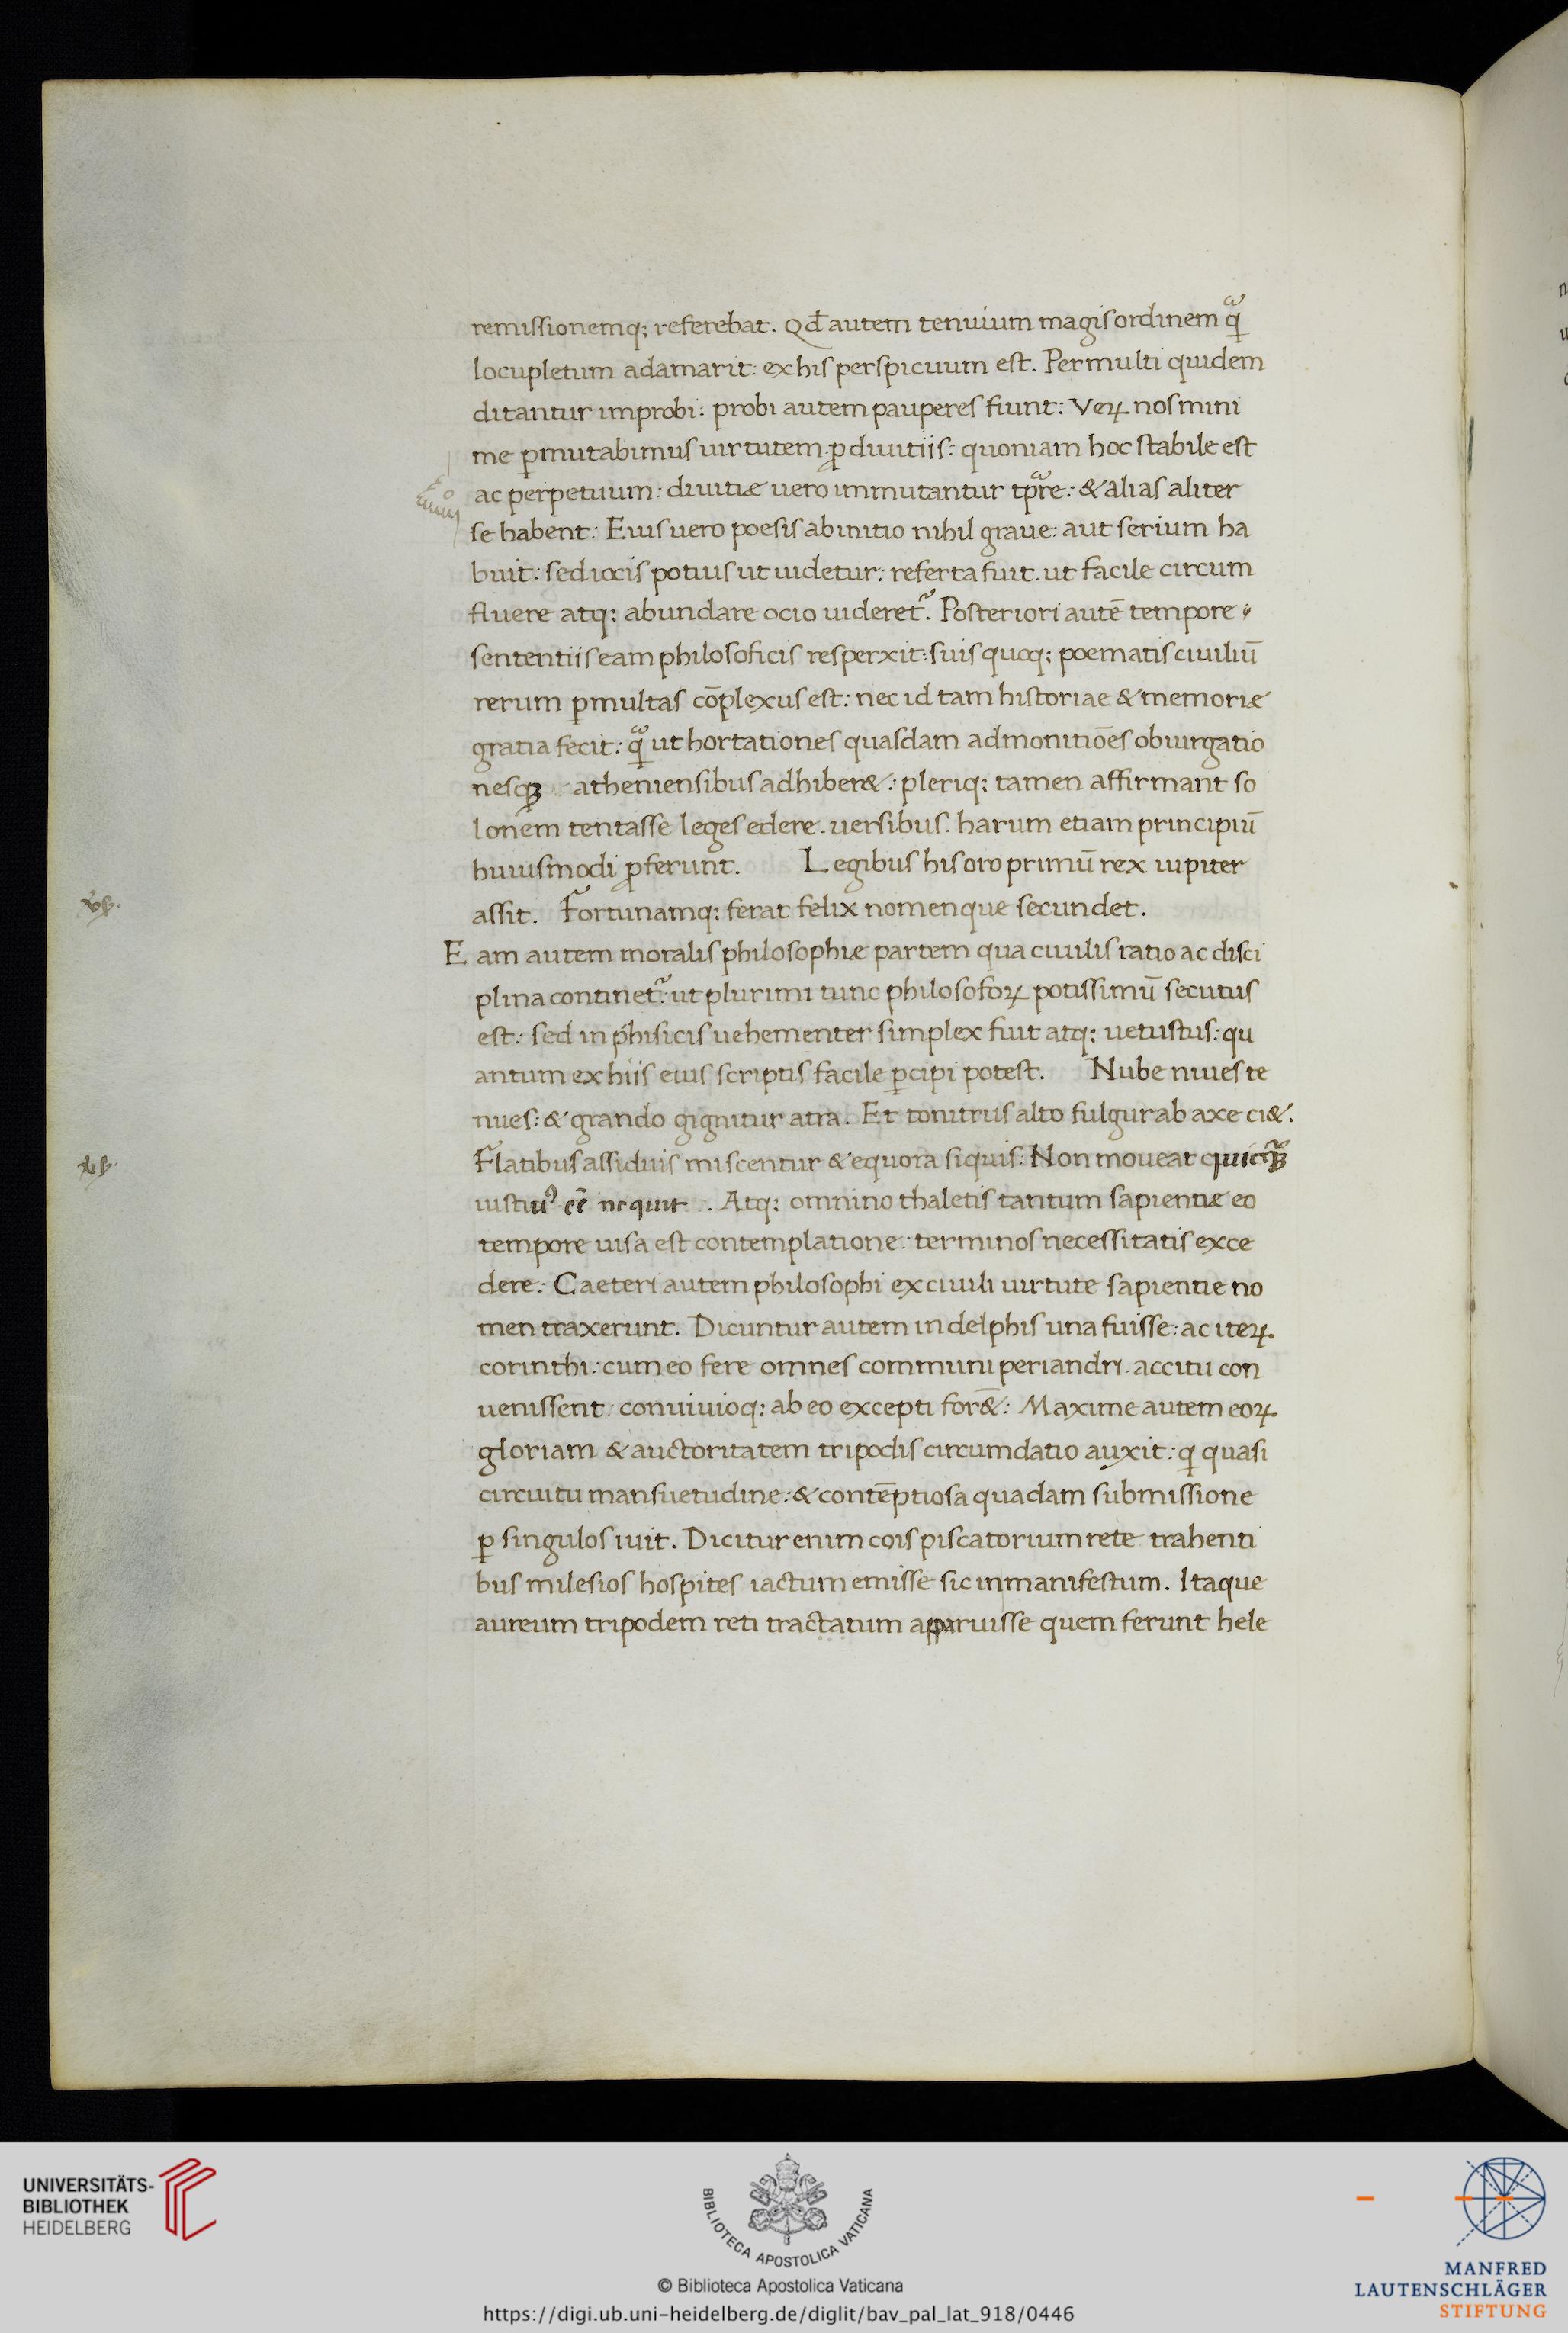 remissionemq; referebat. Qđ autem tenuium magis ordinem qͣ
locupletum adamarit: ex his perspicuum est. Permulti quidem
ditantur improbi: probi autem pauperes fiunt: Veꝝ nos mini
me ꝑmutabimus uirtutem ꝓ diuitiis: quoniam hoc stabile est
ac perpetuum: diuitiæ uero immutantur tpͣre: & alias aliter
se habent: Eius uero poesis ab initio nihil graue: aut serium ha
buit: sed iocis potius ut uidetur: referta fuit. ut facile circum
fluere atq; abundare ocio uideret᷑. Posteriori autē tempore
sententiis eam philosoficis resperxit: suis quoq; poematis ciuiliū
rerum ꝑmultas cōplexus est: nec id tam historiae & memoriæ
gratia fecit: qͣ ut hortationes quasdam admonitiōes obiurgatio
nesqꝫ atheniensibus adhiber&: pleriq; tamen affirmant so
lonem tentasse leges edere. uersibus. harum etiam principiū
huiusmodi ꝓferunt. Legibus his oro primū rex iupiter
assit. Fortunamq; ferat felix nomenque secundet.
Eam autem moralis philosophiæ partem qua ciuilis ratio ac disci
plina continet᷑: ut plurimi tunc philosofoꝝ potissimū secutus
est: sed in phisicis uehementer simplex fuit atq; uetustus: qu
antum ex hiis eius scriptis facile ꝑcipi potest. Nube niues te
nues: & grando gignitur atra. Et tonitrus alto fulgur ab axe ci&.
Flatibus assiduis miscentur & equora siquis: Non moueat quicqͣꝫ
iustiuꝰ eē nequit. Atq; omnino thaletis tantum sapientiæ eo
tempore uisa est contemplatione: terminos necessitatis exce
dere: Caeteri autem philosophi ex ciuili uirtute sapientie no
men traxerunt. Dicuntur autem in delphis una fuisse: ac iteꝝ.
corinthi: cum eo fere omnes communi periandri. accitu con
uenissent: conuiuioq; ab eo excepti for&̄: Maxime autem eoꝝ
gloriam & auctoritatem tripodis circumdatio auxit: q quasi
circuitu mansuetudine: & contēptiosa quadam submissione
ꝑ singulos iuit. Dicitur enim cois piscatorium rete trahenti
bus milesios hospites iactum emisse sic inmanifestum. Itaque
aureum tripodem reti tractatum apparuisse quem ferunt hele
UNIVERSITÄTS-
BIBLIOTHEK
HEIDELBERG
BIBLIOTECA APOSTOLICA VATICANA
© Biblioteca Apostolica Vaticana
https://digi.ub.uni-heidelberg.de/diglit/bav_pal_lat_918/0446
MANFRED
LAUTENSCHLÄGER
STIFTUNG